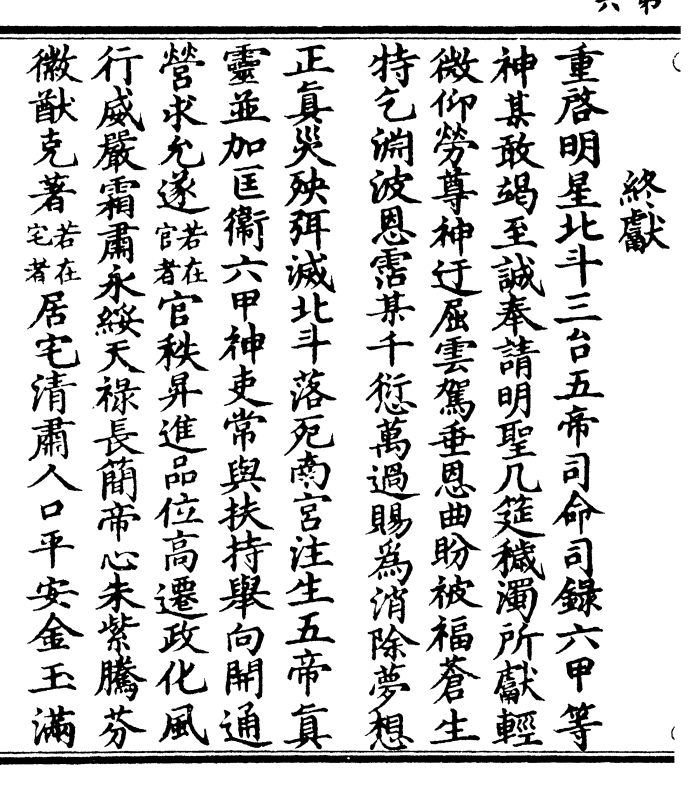 終獻
重啓明星北斗三台五帝司命司錄六甲等
神某敢竭至誠奉請明聖几筵穢濁所獻輕
微仰勞尊神迂屈雲駕垂恩曲盼被福蒼生
特乞淵波恩霑某千愆萬過賜爲消除夢想
正眞災殃弭滅北斗落死南宮注生五帝眞
靈並加匡衞六甲神吏常與扶持舉向開通
營求允遂若在官者官秩昇進品位高遷政化風
行威嚴霜肅永綏天祿長簡帝心朱紫騰芬
徽猷克著若在宅者居宅清肅人口平安金玉滿